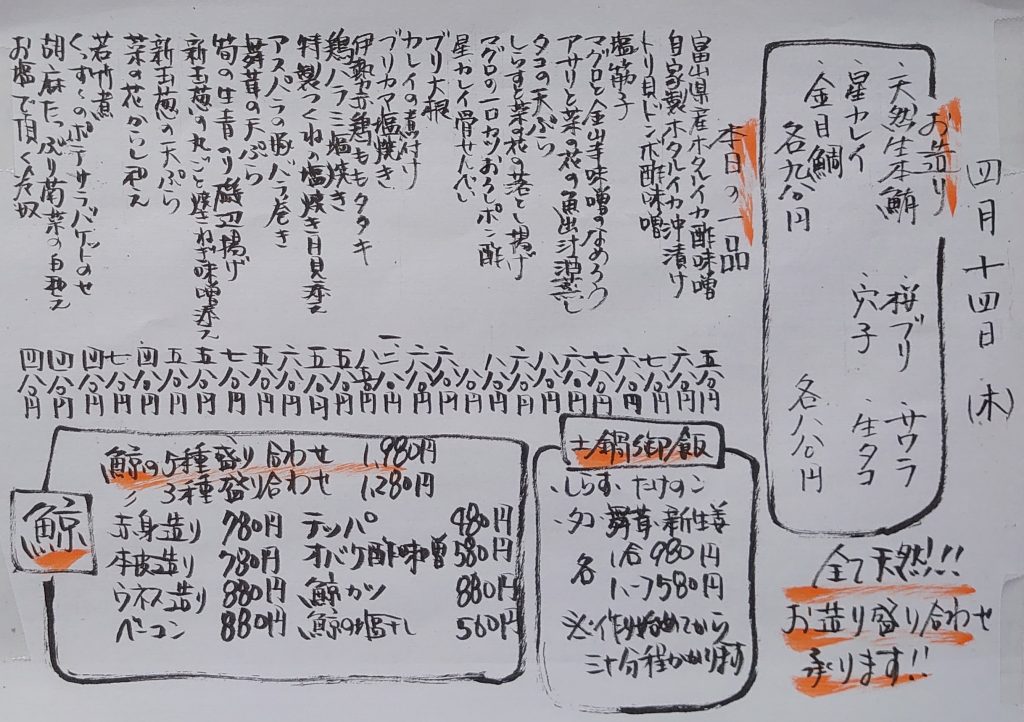 四月十四日(木)
お造り
・天然生本鮪 ・桜ブリ ・サワラ
・星カレイ ・穴子 ・生タコ
・金目鯛
各九八〇円 各八八〇円
全て天然!!
お造り盛り合わせ
承ります!!
本日の一品
富山県産ホタルイカ酢味噌 五八〇円
自家製ホタルイカ沖漬け 六八〇円
トリ貝ドンボ酢味噌 七八〇円
塩筋子 六八〇円
マグロと金山寺味噌のなめろう 七八〇円
アサリと菜の花の魚出汁酒蒸し 六八〇円
タコの天ぷら 八八〇円
しらすと菜の花の落とし揚げ 六八〇円
マグロの一口カツおろしポン酢 八八〇円
星カレイ骨せんべい
ブリ大根 六八〇円
カレイの煮付け
ブリカマ塩焼き
伊勢赤鶏ももタタキ
鶏ハラミ塩焼き 五八〇円
特製つくねの塩焼き月見添え 五五〇円
アスパラの豚バラ巻き 六八〇円
舞茸の天ぷら 五八〇円
筍の生青のり磯辺揚げ 七八〇円
新玉葱の丸ごと焼ねぎ味噌添え 五八〇円
新玉葱の天ぷら 五八〇円
菜の花からし和え 四八〇円
若竹煮 七八〇円
くずしのポテサラバケットのせ 四八〇円
胡麻たっぷり菊菜の白和え 四八〇円
お塩で頂く冷奴 四八〇円
土鍋御飯
・しらす・たけのこ
・タコ・舞茸・新生姜
各 1合980円
ハーフ580円
※作り始めてから
三十分程かかります
鯨
鯨の5種盛り合わせ 1,980円
〃 3種盛り合わせ 1,280円
赤身造り 780円 テッパ 980円
本皮造り 780円 オバケ酢味噌 580円
ウネス造り 880円 鯨カツ 880円
ベーコン 880円 鯨の塩干し 560円